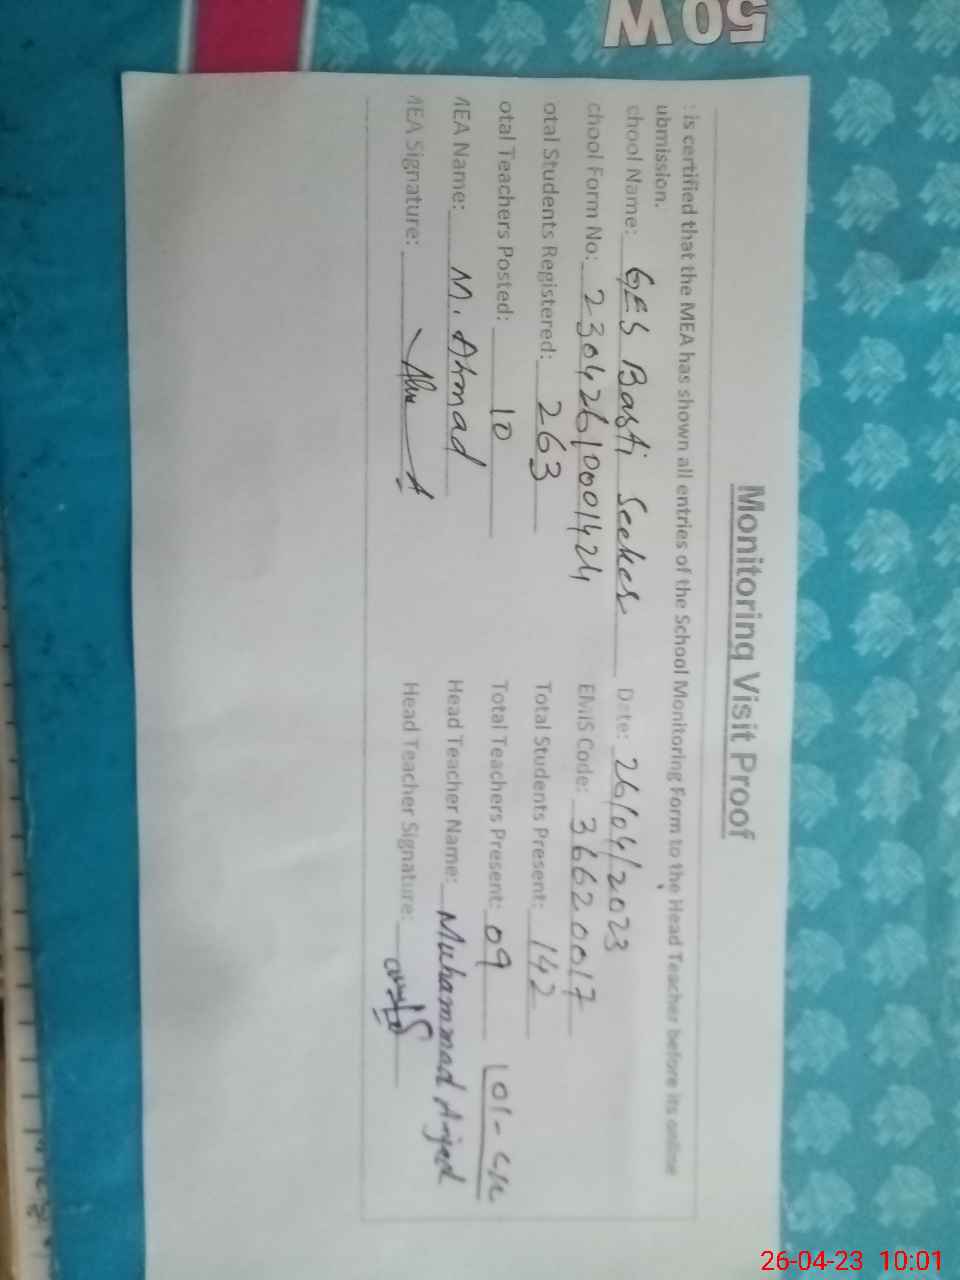 50W
Monitoring Visit Proof
is certified that the MEA has shown all entries of the School Monitoring Form to the Head Teacher before its online
ubmission.
chool Name: GES Basti Seeher Date: 26/04/2023
chool Form No: 23042610001424 EMIS Code: 36620017
otal Students Registered: 263 Total Students Present: 142
otal Teachers Posted: 10 Total Teachers Present: 09 01-
MEA Name: M. Ahmad Head Teacher Name: Muhammad Amjad
MEA Signature: Head Teacher Signature:
26-04-23 10:01